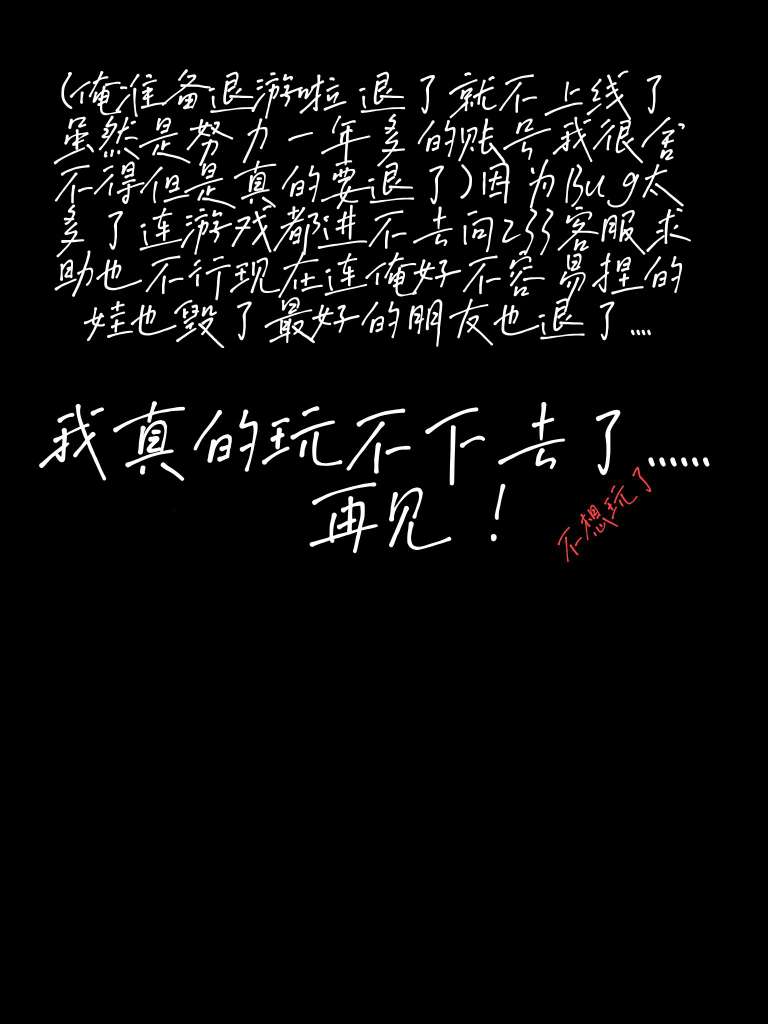 (俺准备退游啦退了就不上线了
虽然是努力一年多的账号我很舍
不得但是真的要退了)因为Bug太
多了连游戏都进不去问233客服求
助也不行现在连俺好不容易捏的
娃也毁了最好的朋友也退了....
我真的玩不下去了......
再见！
不想玩了